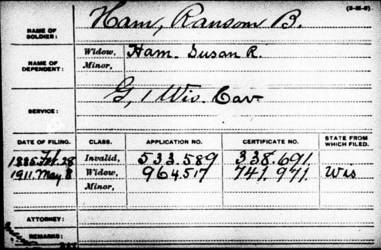 (3-M-6)
NAME OF SOLDIER: Ham, Ransom B.
NAME OF DEPENDENT: Widow, Ham. Susan R.
Minor,
SERVICE: G, 1 Wis. Cav
DATE OF FILING. CLASS. APPLICATION NO. CERTIFICATE NO. STATE FROM WHICH FILED.
1885 Feb. 28 Invalid, 533.589 338.691.
1911. May 8 Widow, 964517 741.971. Wis
Minor,
ATTORNEY:
REMARKS: